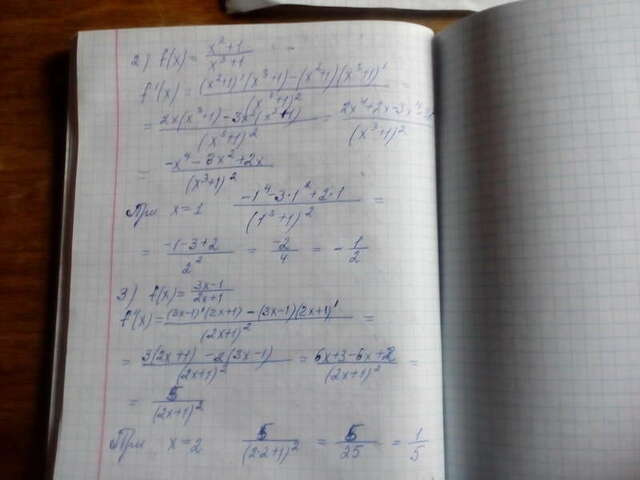 2) f(x) = (x²+1)/(x³+1)
f'(x) = ((x²+1)'(x³+1) - (x²+1)(x³+1)')/(x³+1)² =
= (2x(x³+1) - 3x²(x²+1))/(x³+1)² = (2x⁴+2x-3x⁴-3x²)/(x³+1)²
= (-x⁴-3x²+2x)/(x³+1)²
При x=1 (-1⁴-3·1²+2·1)/(1³+1)² =
= (-1-3+2)/2² = -2/4 = -1/2
3) f(x) = (3x-1)/(2x+1)
f'(x) = ((3x-1)'(2x+1) - (3x-1)(2x+1)')/(2x+1)² =
= (3(2x+1) - 2(3x-1))/(2x+1)² = (6x+3-6x+2)/(2x+1)² =
= 5/(2x+1)²
При x=2 5/(2·2+1)² = 5/25 = 1/5